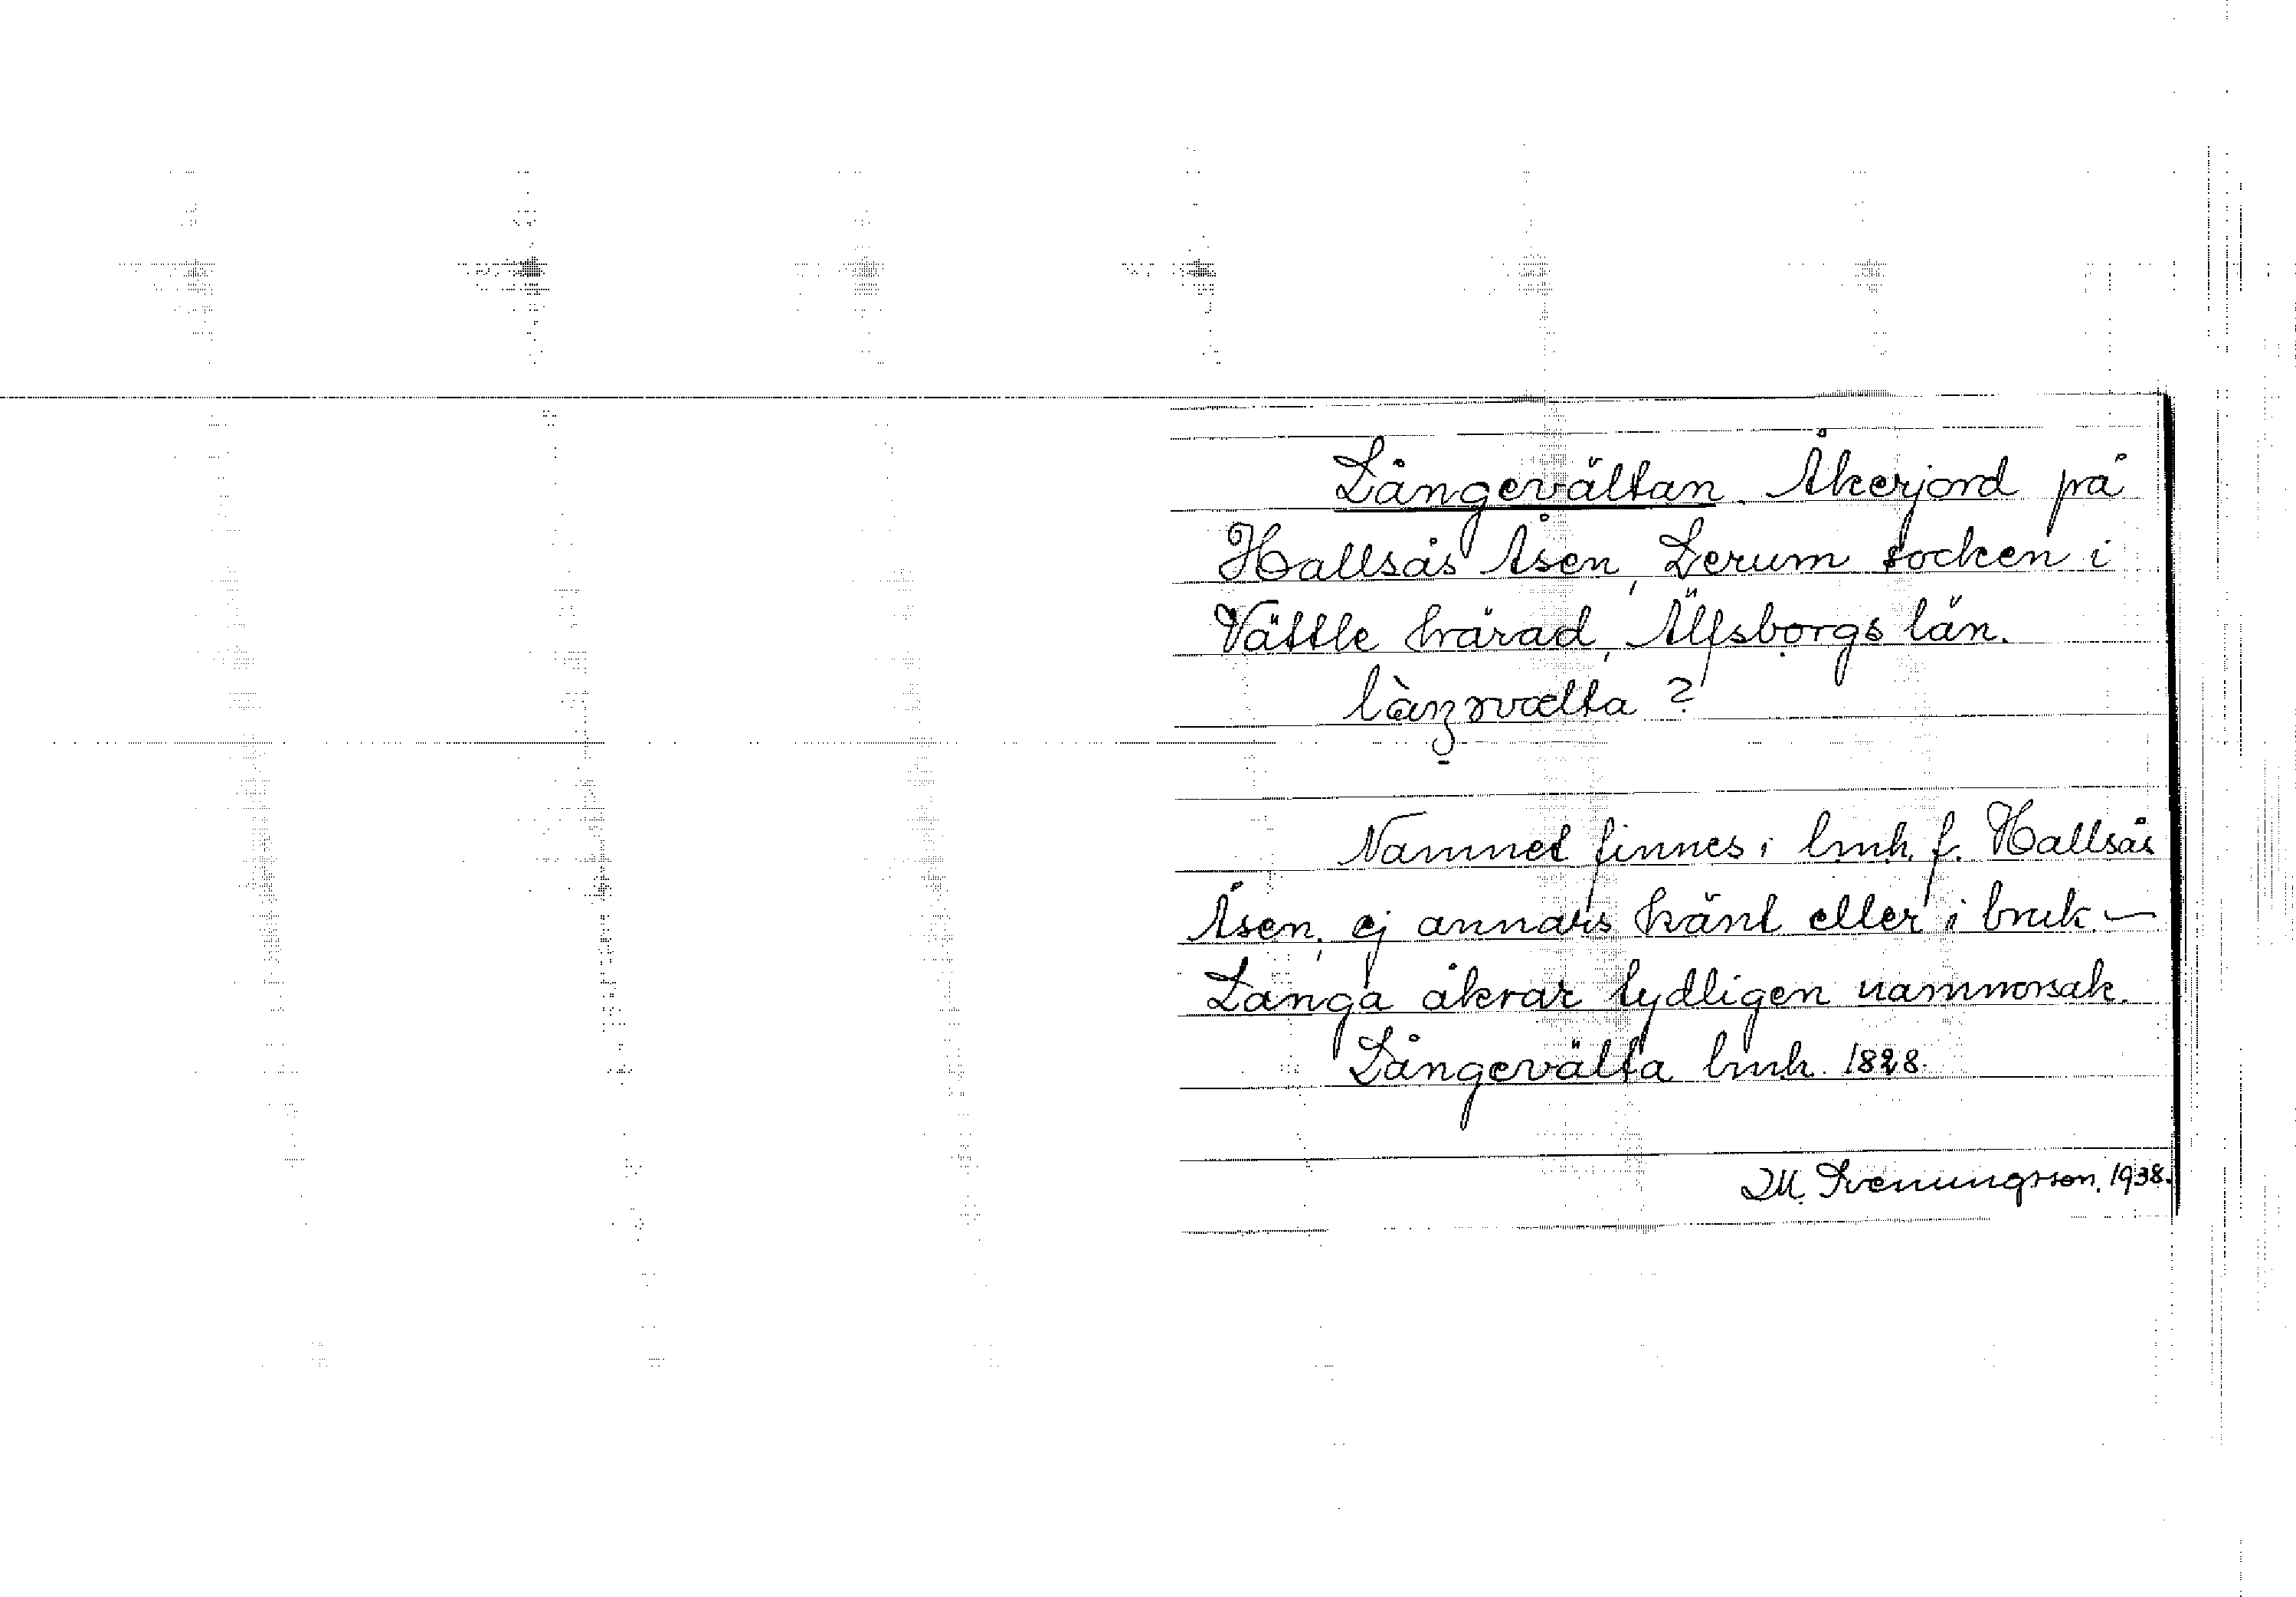 Långevältan. Åkerjord på
Hallsås Åsen, Lerum socken i
Vättle härad, Älfsborgs län.
?
Namnet finnes i lmh. f. Hallsås
Åsen, ej annars känt eller i bruk. —
Långa åkrar tydligen namnorsak.
Långevälta lmh. 1828.
M. Svenungsson. 1938.